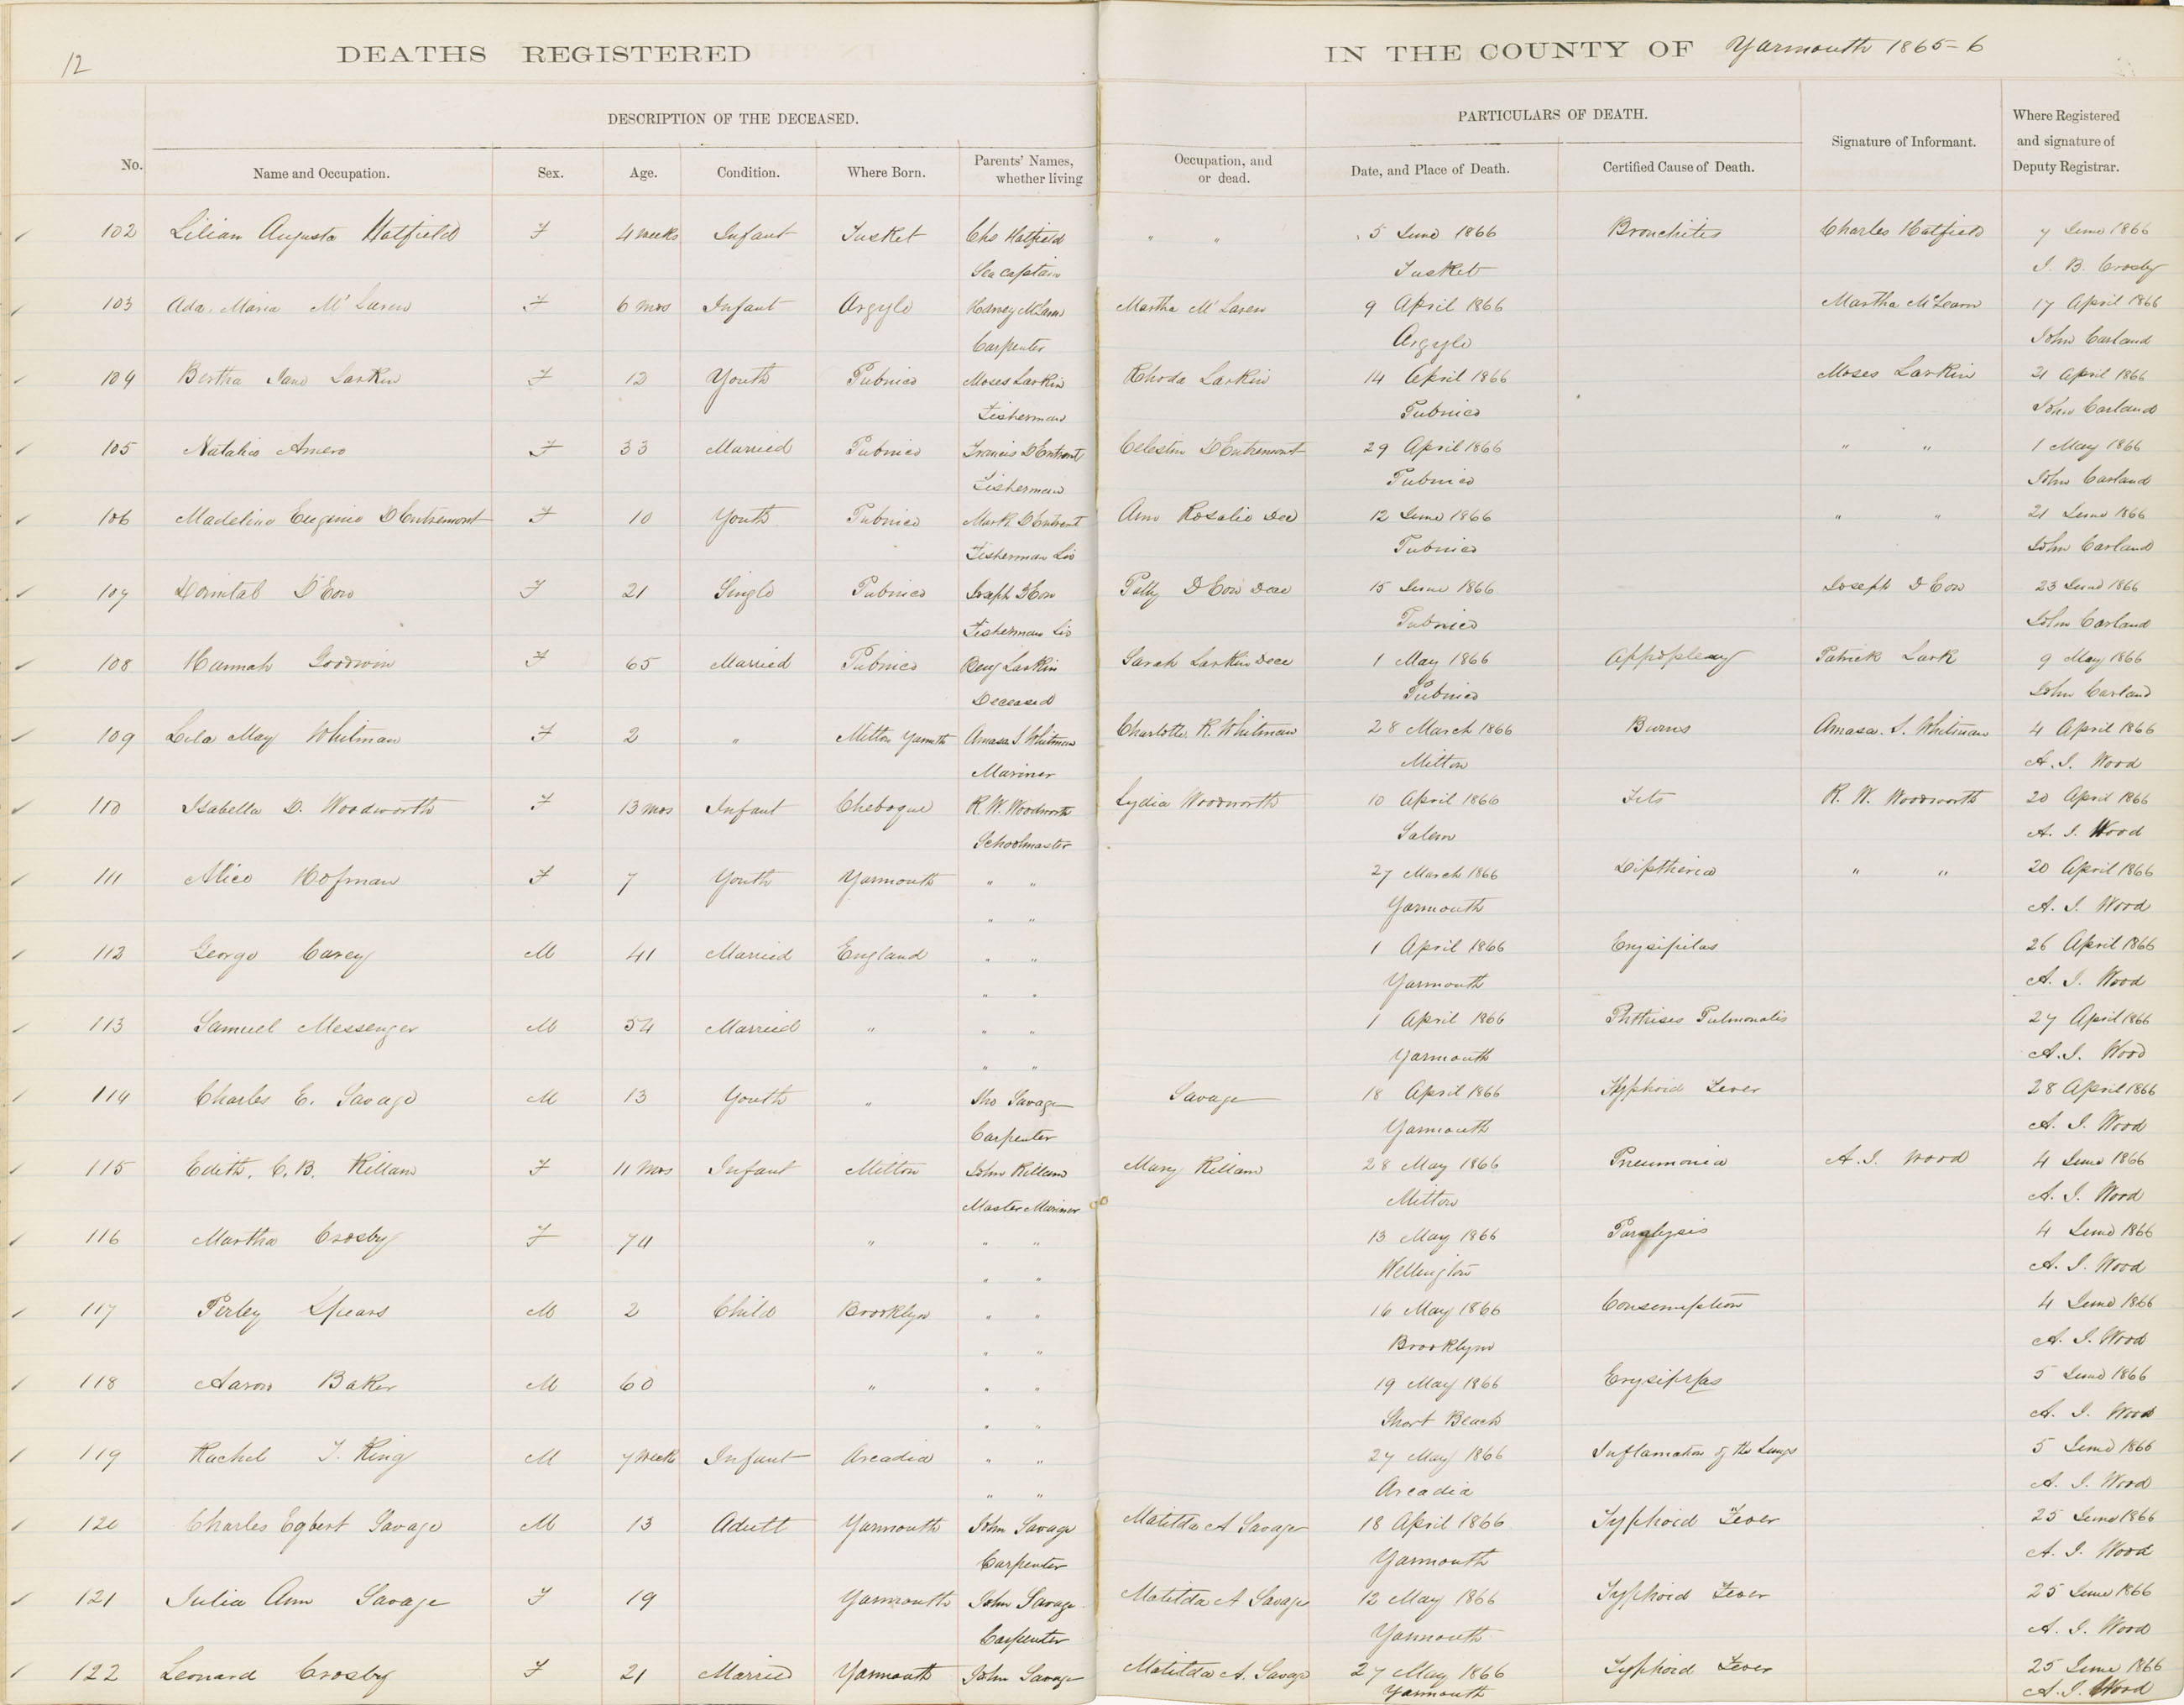 12
DEATHS REGISTERED IN THE COUNTY OF Yarmouth 1865-6
DESCRIPTION OF THE DECEASED. PARTICULARS OF DEATH.
No. Name and Occupation. Sex. Age. Condition. Where Born. Parents' Names, whether living Occupation, and or dead. Date, and Place of Death. Certified Cause of Death. Signature of Informant. Where Registered and signature of Deputy Registrar.
102 Lilian Augusta Hatfield F 4 weeks Infant Tusket Chs Hatfield " " 5 June 1866 Bronchitis Charles Hatfield 7 June 1866
Sea captain Tusket J. B. Crosby
103 Ada Maria McLaren F 6 mos Infant Argyle Harvey McLaren Martha McLaren 9 April 1866 Martha McLearn 17 April 1866
Carpenter Argyle John Carland
104 Bertha Jane Larkin F 12 Youth Pubnico Moses Larkin Rhoda Larkin 14 April 1866 Moses Larkin 21 April 1866
Fisherman Pubnico John Carland
105 Natalie Amero F 33 Married Pubnico Francis DEntremont Celestin DEntremont 29 April 1866 " " 1 May 1866
Fisherman Pubnico John Carland
106 Madeline Eugenie DEntremont F 10 Youth Pubnico Mark DEntremont Ann Rosalie Dec 12 June 1866 " " 21 June 1866
Fisherman Liv Pubnico John Carland
107 D'Eon F 21 Single Pubnico Joseph DEon Polly DEon Dece 15 June 1866 Joseph DEon 23 June 1866
Fisherman Liv Pubnico John Carland
108 Hannah Goodwin F 65 Married Pubnico Benj Larkin Sarah Larkin Dece 1 May 1866 Appoplexy Patrick Lark 9 May 1866
Deceased Pubnico John Carland
109 Lila May Whitman F 2 " Milton Yarmth Amasa S Whitman Charlotte R. Whitman 28 March 1866 Burns Amasa. S. Whitman 4 April 1866
Mariner Milton A. J. Wood
110 Isabella D. Woodworth F 13 mos Infant Chebogue R. W. Woodworth Lydia Woodworth 10 April 1866 Fits R. W. Woodworth 20 April 1866
Schoolmaster Salem A. J. Wood
111 Alice Hofman F 7 Youth Yarmouth " " 27 March 1866 Diptheria " " 20 April 1866
" " Yarmouth A. J. Wood
112 George Carey M 41 Married England " " 1 April 1866 Erysipilas 26 April 1866
" " Yarmouth A. J. Wood
113 Samuel Messenger M 54 Married " " " 1 April 1866 Phthises Pulmonalis 27 April 1866
" " Yarmouth A. J. Wood
114 Charles E. Savage M 13 Youth " Jno Savage Savage 18 April 1866 Typhoid Fever 28 April 1866
Carpenter Yarmouth A. J. Wood
115 Edith. C. B. Killam F 11 Mos Infant Milton John Killam Mary Killam 28 May 1866 Pneumonia A. J. Wood 4 June 1866
Master Mariner Milton A. J. Wood
116 Martha Crosby F 74 " " " 13 May 1866 Paralysis 4 June 1866
" " Wellington A. J. Wood
117 Perley Spears M 2 Child Brooklyn " " 16 May 1866 Consemption 4 June 1866
" " Brooklyn A. J. Wood
118 Aaron Baker M 60 " " " 19 May 1866 Erysiplas 5 June 1866
" " Short Beach A. J. Wood
119 Rachel T. King M 7 Weeks Infant Arcadia " " 27 May 1866 Inflamation of the Lungs 5 June 1866
" " Arcadia A. J. Wood
120 Charles Egbert Savage M 13 Adult Yarmouth John Savage Matilda A Savage 18 April 1866 Typhoid Fever 25 June 1866
Carpenter Yarmouth A. J. Wood
121 Julia Ann Savage F 19 Yarmouth John Savage Matilda A Savage 12 May 1866 Typhoid Fever 25 June 1866
Carpenter Yarmouth A. J. Wood
122 Leonard Crosby F 21 Married Yarmouth John Savage Matilda A. Savage 27 May 1866 Typhoid Fever 25 June 1866
Yarmouth A. J. Wood